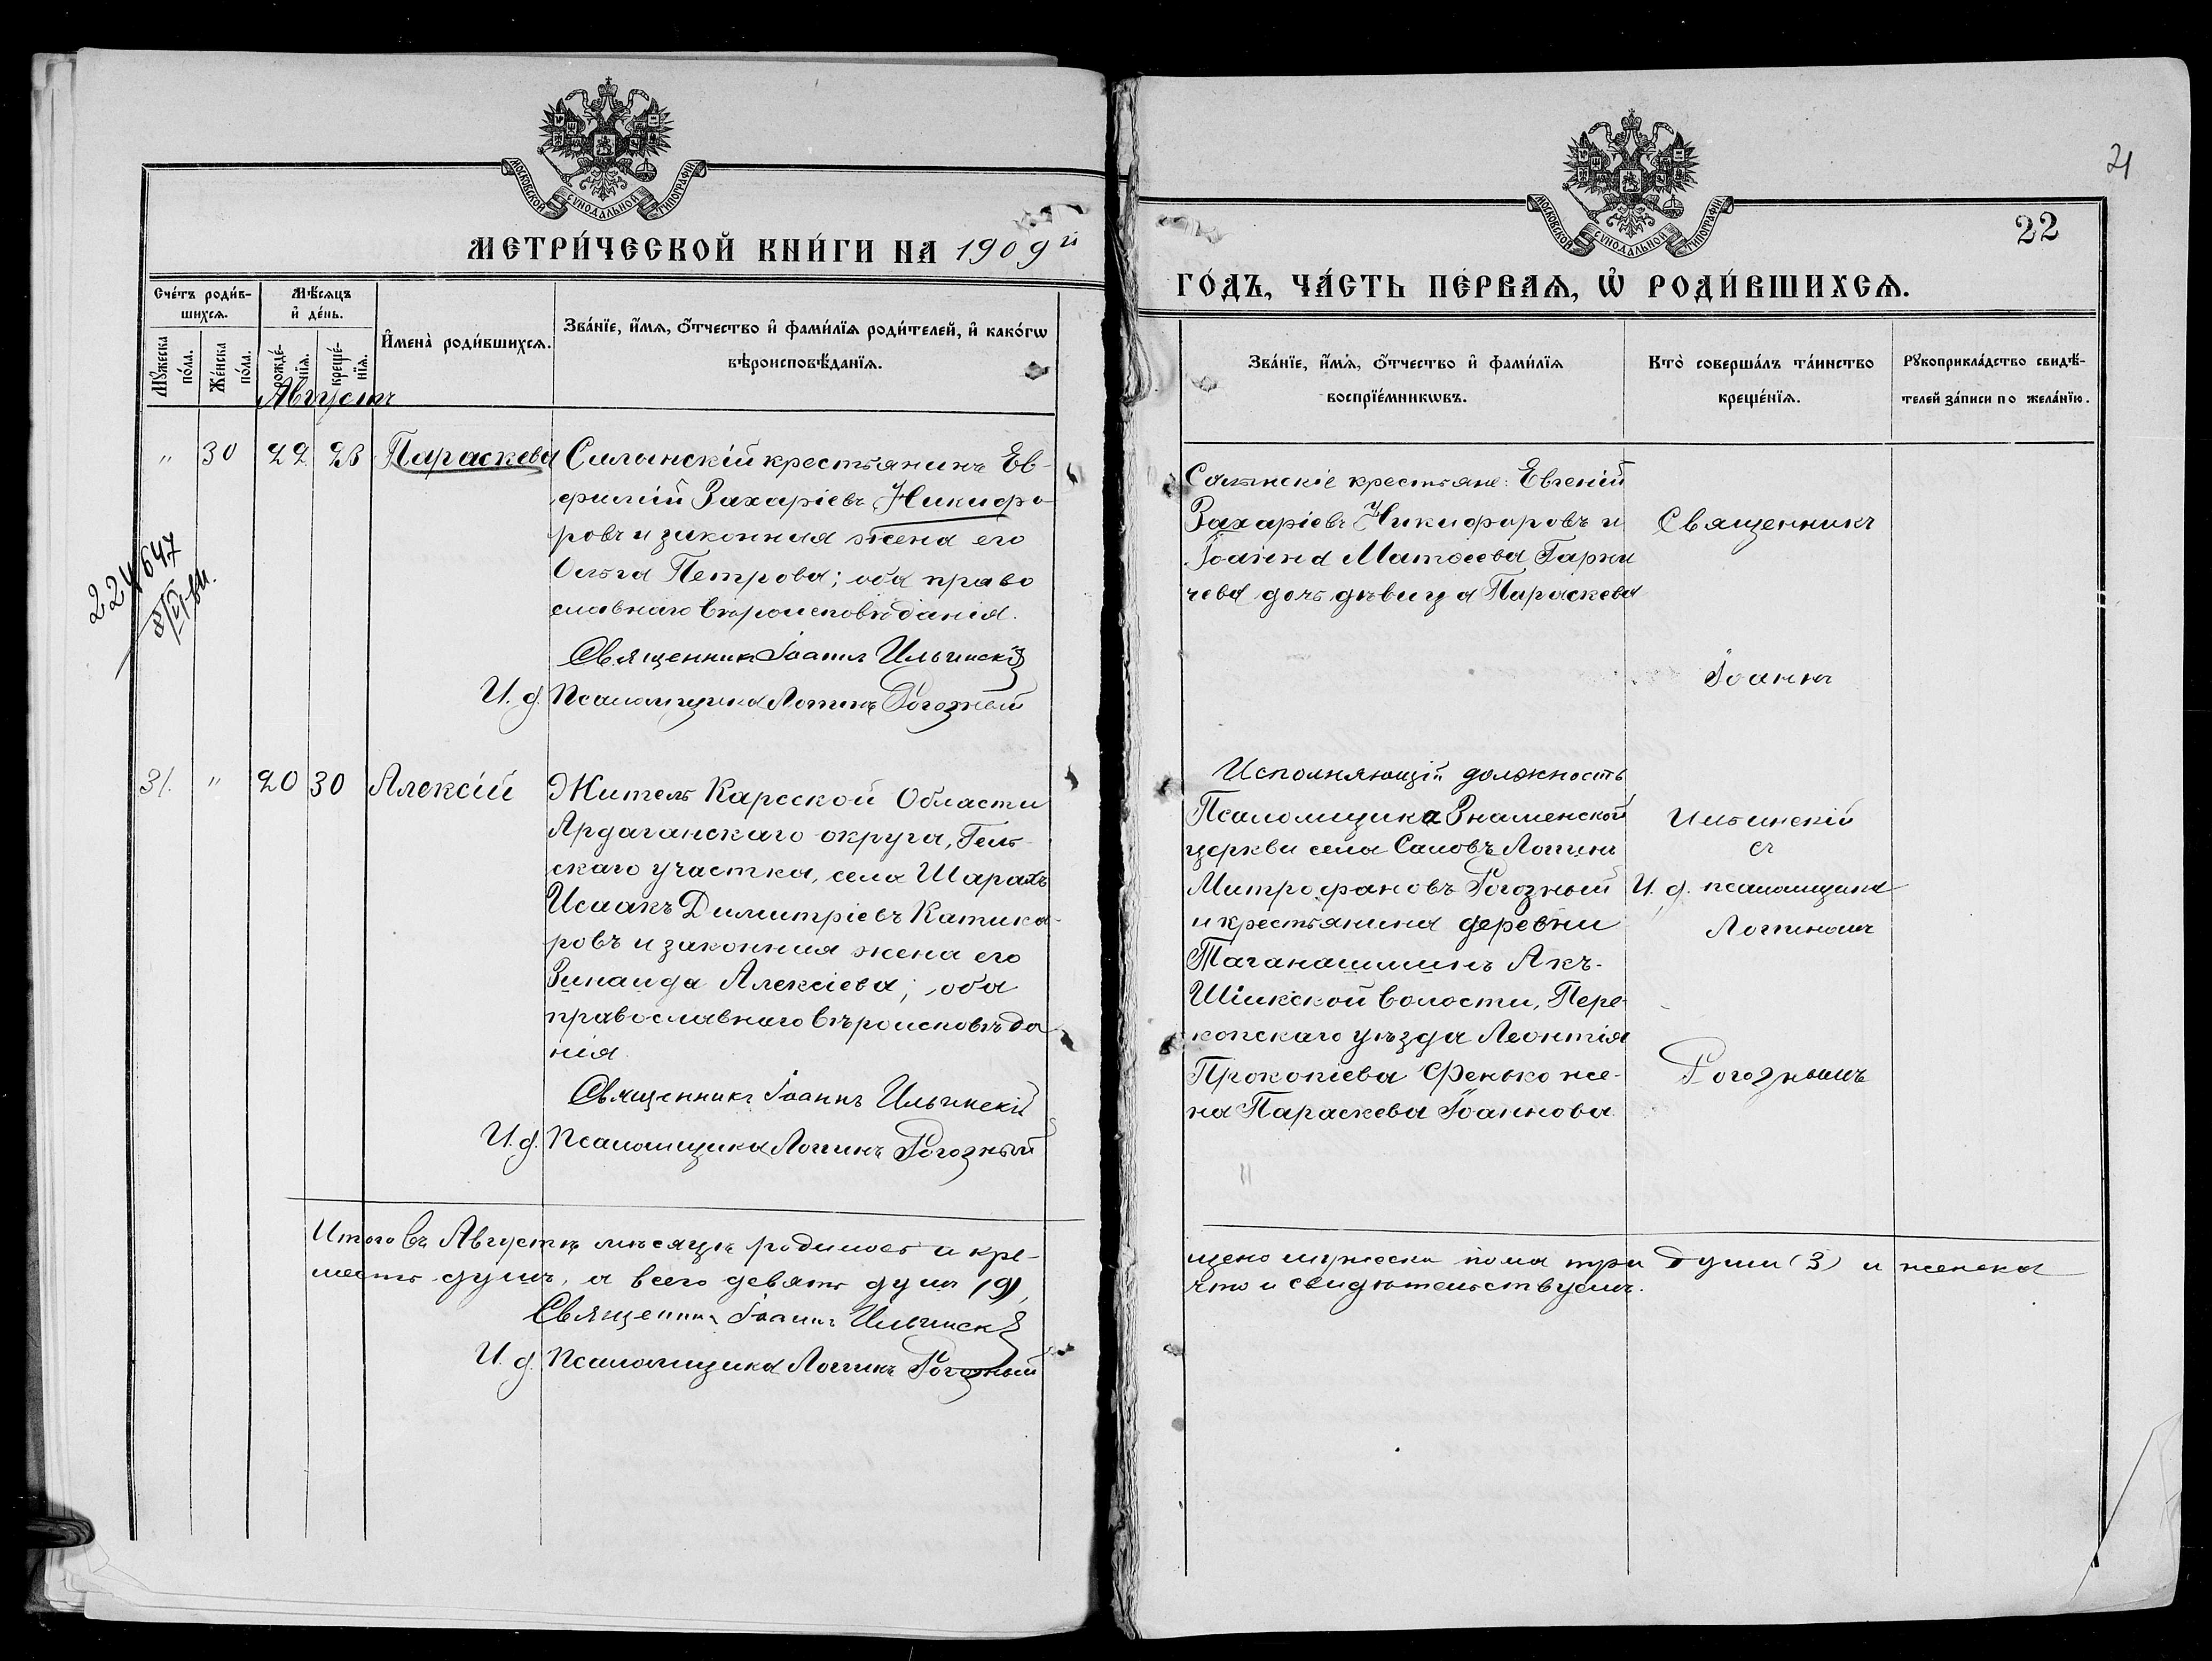 МОСКОВСКОЙ СѴНОДАЛЬНОЙ ТИПОГРАФІИ
МЕТРИ́ЧЕСКОЙ КНИ́ГИ НА 1909й
Сче́тъ роди́в-
шихсѧ.
Мѣ́сѧцъ
и҆ де́нь.
И҆мена̀ роди́вшихсѧ.
Зва́нїе, и҆́мѧ, ѻ҆́тчество и҆ фами́лїѧ роди́телей, и҆ како́гѡ
вѣроисповѣ́данїѧ.
Мꙋ́жеска
по́ла.
Же́нска
по́ла.
рожде́-
нїѧ.
креще́-
нїѧ.
Августъ
" 30 22 23 Параскева Салынскій крестьянинъ Ев-
фимій Захаріевъ Никифо-
ровъ и законная жена его
Ольга Петрова; оба право
славнаго вѣроисповѣданія.
Священникъ Іоаннъ Ильинскій
И. д. Псаломщика Логинъ Рогозный
224647
31. " 20 30 Алексій Житель Карсской Области
Ардаганскаго округа, Гель-
скаго участка, села Шарахъ
Исаакъ Димитріевъ Катика-
ровъ и законная жена его
Зинаида Алексіева; оба
православнаго вѣроисповѣда
нія.
Священникъ Іоаннъ Ильинскій
И. д. Псаломщика Логинъ Рогозный
Итого въ Августѣ мѣсяцѣ родилось и кре-
шесть душъ, а всего девять душъ (9),
Священникъ Іоаннъ Ильинскій
И. д. Псаломщика Логинъ Рогозный
21
МОСКОВСКОЙ СѴНОДАЛЬНОЙ ТИПОГРАФІИ
22
ГО́ДЪ, ЧА́СТЬ ПЕ́РВАѦ, Ѡ҆ РОДИ́ВШИХСѦ.
Зва́нїе, и҆́мѧ, ѻ҆́тчество и҆ фами́лїѧ
воспрїе́мникѡвъ.
Кто̀ соверша́лъ та́инство
креще́нїѧ.
Рꙋкоприкла́дство свидѣ́-
телей за́писи по жела́нїю.
Салынскіе крестьяне: Евгеній
Захаріевъ Никифоровъ и
Іоанна Матѳеева Гарку
чева дочь дѣвица Параскева
Священникъ
Іоаннъ
Исполняющій должность
Псаломщика Знаменской
церкви села Саловъ Логинъ
Митрофановъ Рогозный
и крестьянина деревни
Таганашминъ Акъ-
Шіикской волости, Пере-
копскаго уѣзда Леонтія
Прокопіева Фенько же-
на Параскева Іоаннова
Ильинскій
съ
И. д. псаломщика
Логиномъ
Рогознымъ
"
щено мужеска пола три души (3) и женска
что и свидѣтельствуемъ.